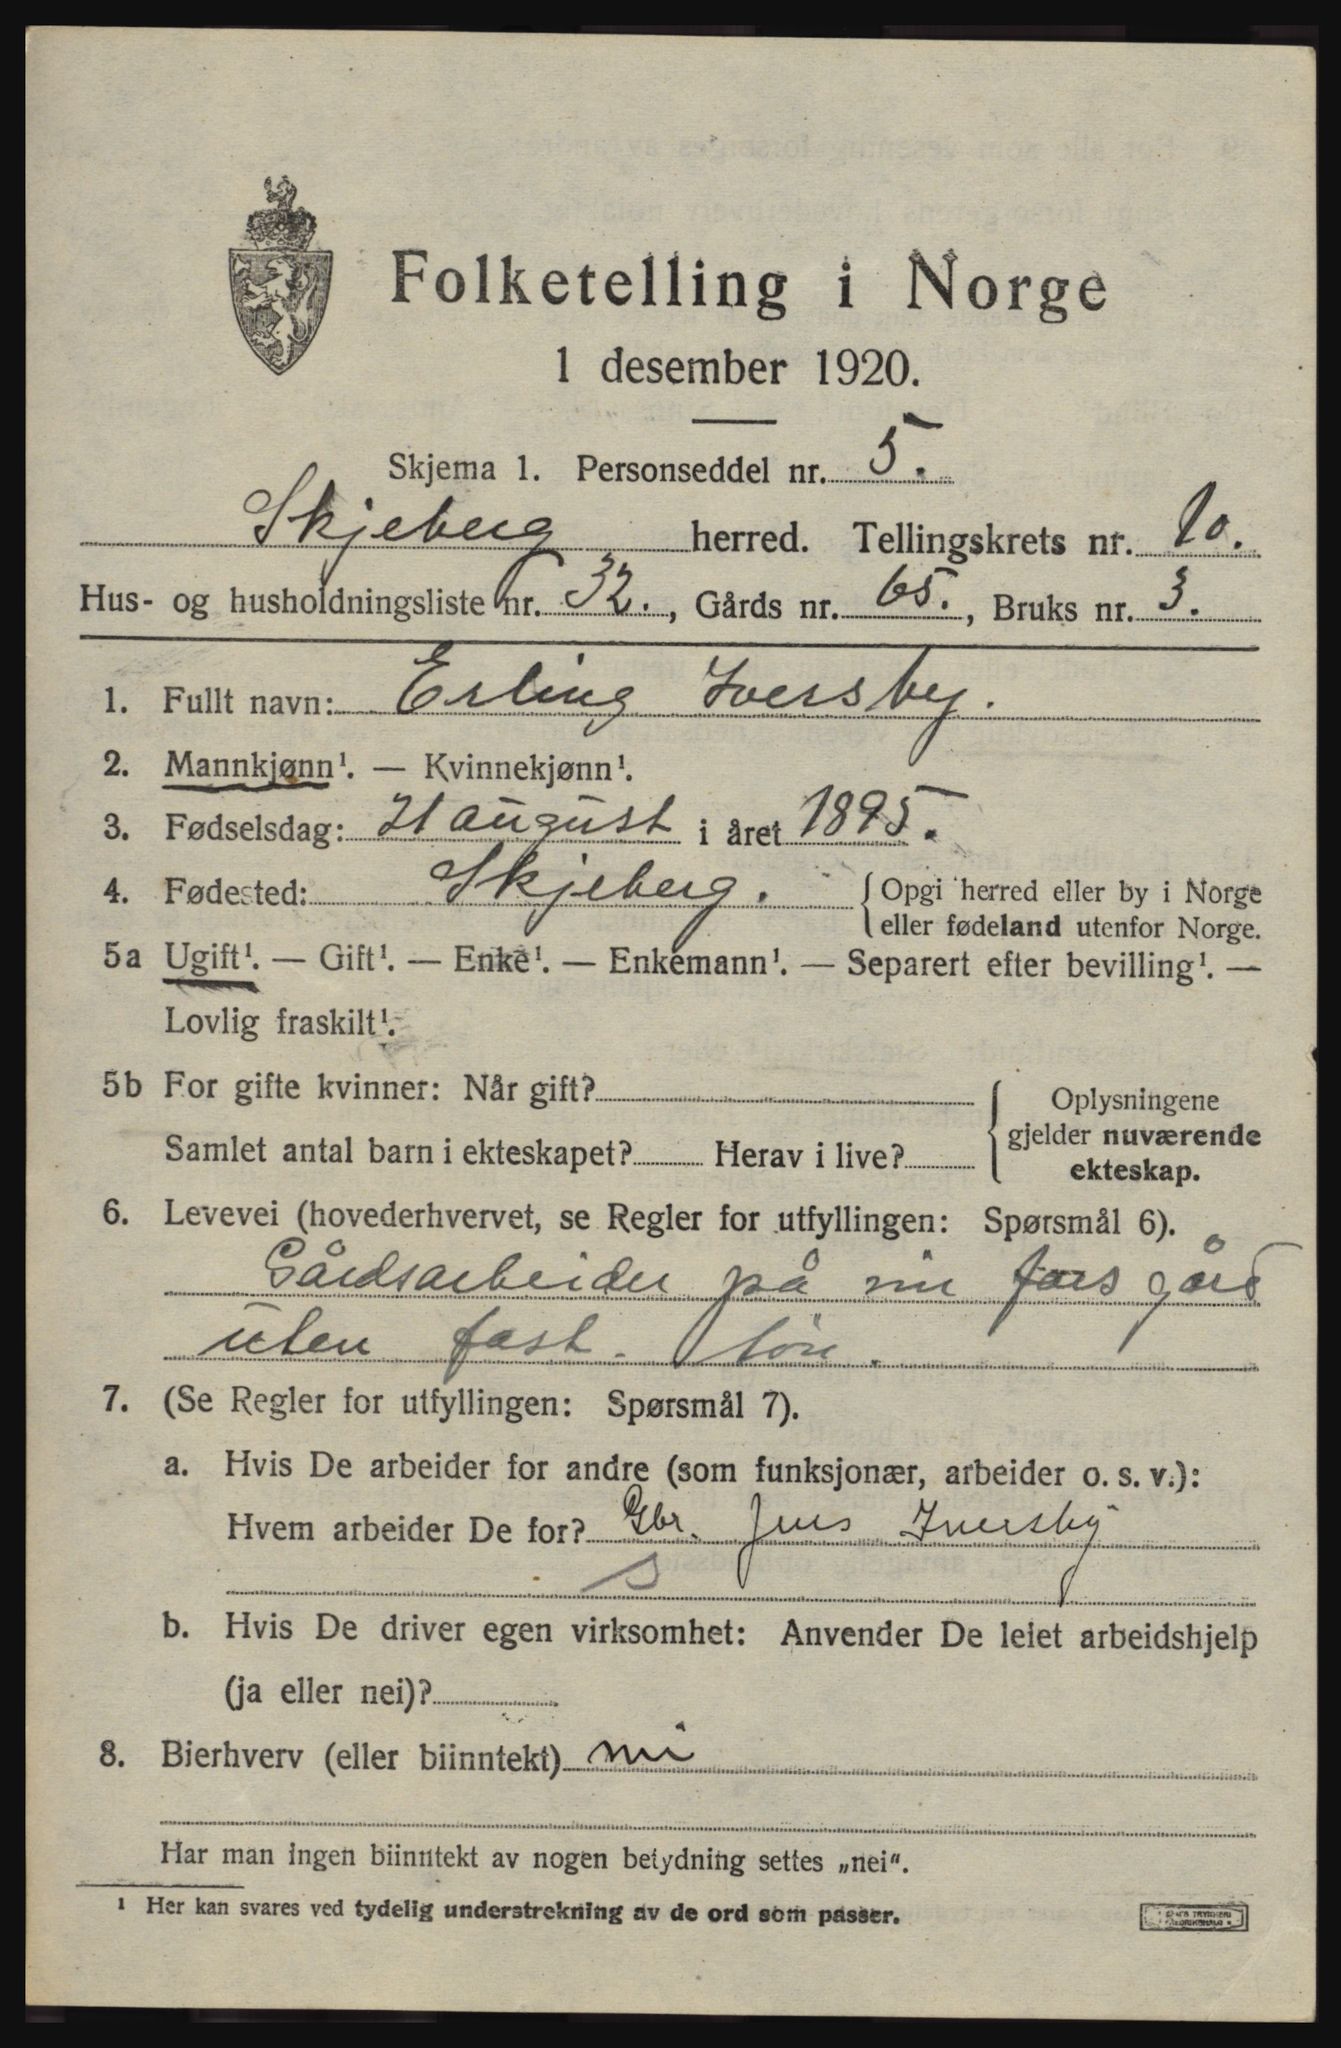 Folketelling i Norge
1 desember 1920.
Skjema 1. Personseddel nr. 5.
Skjeberg herred. Tellingskrets nr. 10.
Hus- og husholdningsliste nr. 32., Gårds nr. 65., Bruks nr. 3.
1. Fullt navn: Erling Iversby.
2. Mannkjønn¹. — Kvinnekjønn¹.
3. Fødselsdag: 21 august i året 1895.
4. Fødested: Skjeberg. { Opgi herred eller by i Norge
eller fødeland utenfor Norge.
5a Ugift¹. — Gift¹. — Enke¹. — Enkemann¹. — Separert efter bevilling¹. —
Lovlig fraskilt¹.
5b For gifte kvinner: Når gift?
Samlet antal barn i ekteskapet? Herav i live?
Oplysningene
gjelder nuværende
ekteskap.
6. Levevei (hovederhvervet, se Regler for utfyllingen: Spørsmål 6).
Gårdsarbeider på min fars gård
uten fast lön.
7. (Se Regler for utfyllingen: Spørsmål 7).
a. Hvis De arbeider for andre (som funksjonær, arbeider o. s. v.):
Hvem arbeider De for? Gbr. Jens Iversby
S
b. Hvis De driver egen virksomhet: Anvender De leiet arbeidshjelp
(ja eller nei)?
8. Bierhverv (eller biinntekt) nei
Har man ingen biinntekt av nogen betydning settes „nei".
¹ Her kan svares ved tydelig understrekning av de ord som passer.